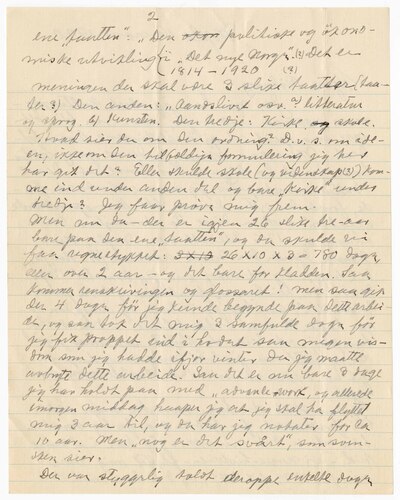 2
ene "punkten": "Den politiske og økono-
miske utvikling i "Det nye Norge". (3) Det er
1814-1920 (3)
meningen der skal være 3 slike
Den anden: "Aandslivet osv. a) litteratur
og sprog. b) Kunsten. Den tredje: Kirke og skole.
Hvad sier du om den ordning? D.v.s. om idé-
en, ikke om den tilfældige formulering jeg her
har git det? Eller skulde skole (og videnskap (3)) kom-
me ind under anden del og bare "Kirke" under
tredje? Jeg faar prøve mig frem.
Men nu da - der er igjen 26 slike tre-aar
bare paa den ene "punkten", og da skulde vi
faa regnestykket: 26 X 10 X 3 = 780 dage
eller over 2 aar - og det bare for kladden. Saa
kommer renskrivingen og glossaret! Men saa gik
der 4 dage før jeg kunde begynde paa dette arbei-
de, og saa tok det mig 3 samfulde dage før
jeg fik proppet ind i hodet saa megen vis-
dom som jeg hadde ifjor vinter da jeg maatte
avbryte dette arbeide. Saa det er nu bare 3 dage
jeg har holdt paa med og allerede
imorgen middag haaper jeg at jeg skal ha flyttet
mig 3 aar til, og da har jeg notater for ca
10 aar. Men "nog er det svårt", som sven-
sken sier.
Der var styggelig koldt deroppe enkelte dage